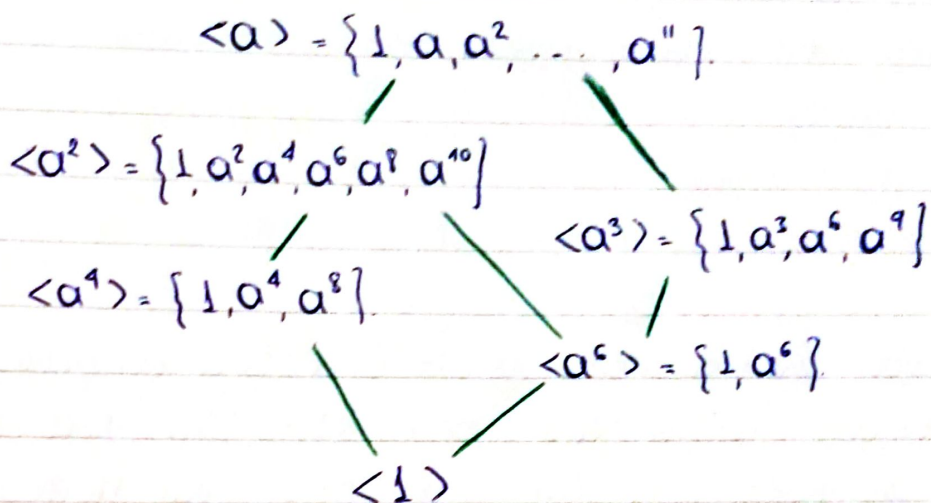 <a> = {1, a, a², ..., a¹¹}.
<a²> = {1, a², a⁴, a⁶, a⁸, a¹⁰}
<a³> = {1, a³, a⁶, a⁹}
<a⁴> = {1, a⁴, a⁸}.
<a⁶> = {1, a⁶}.
<1>